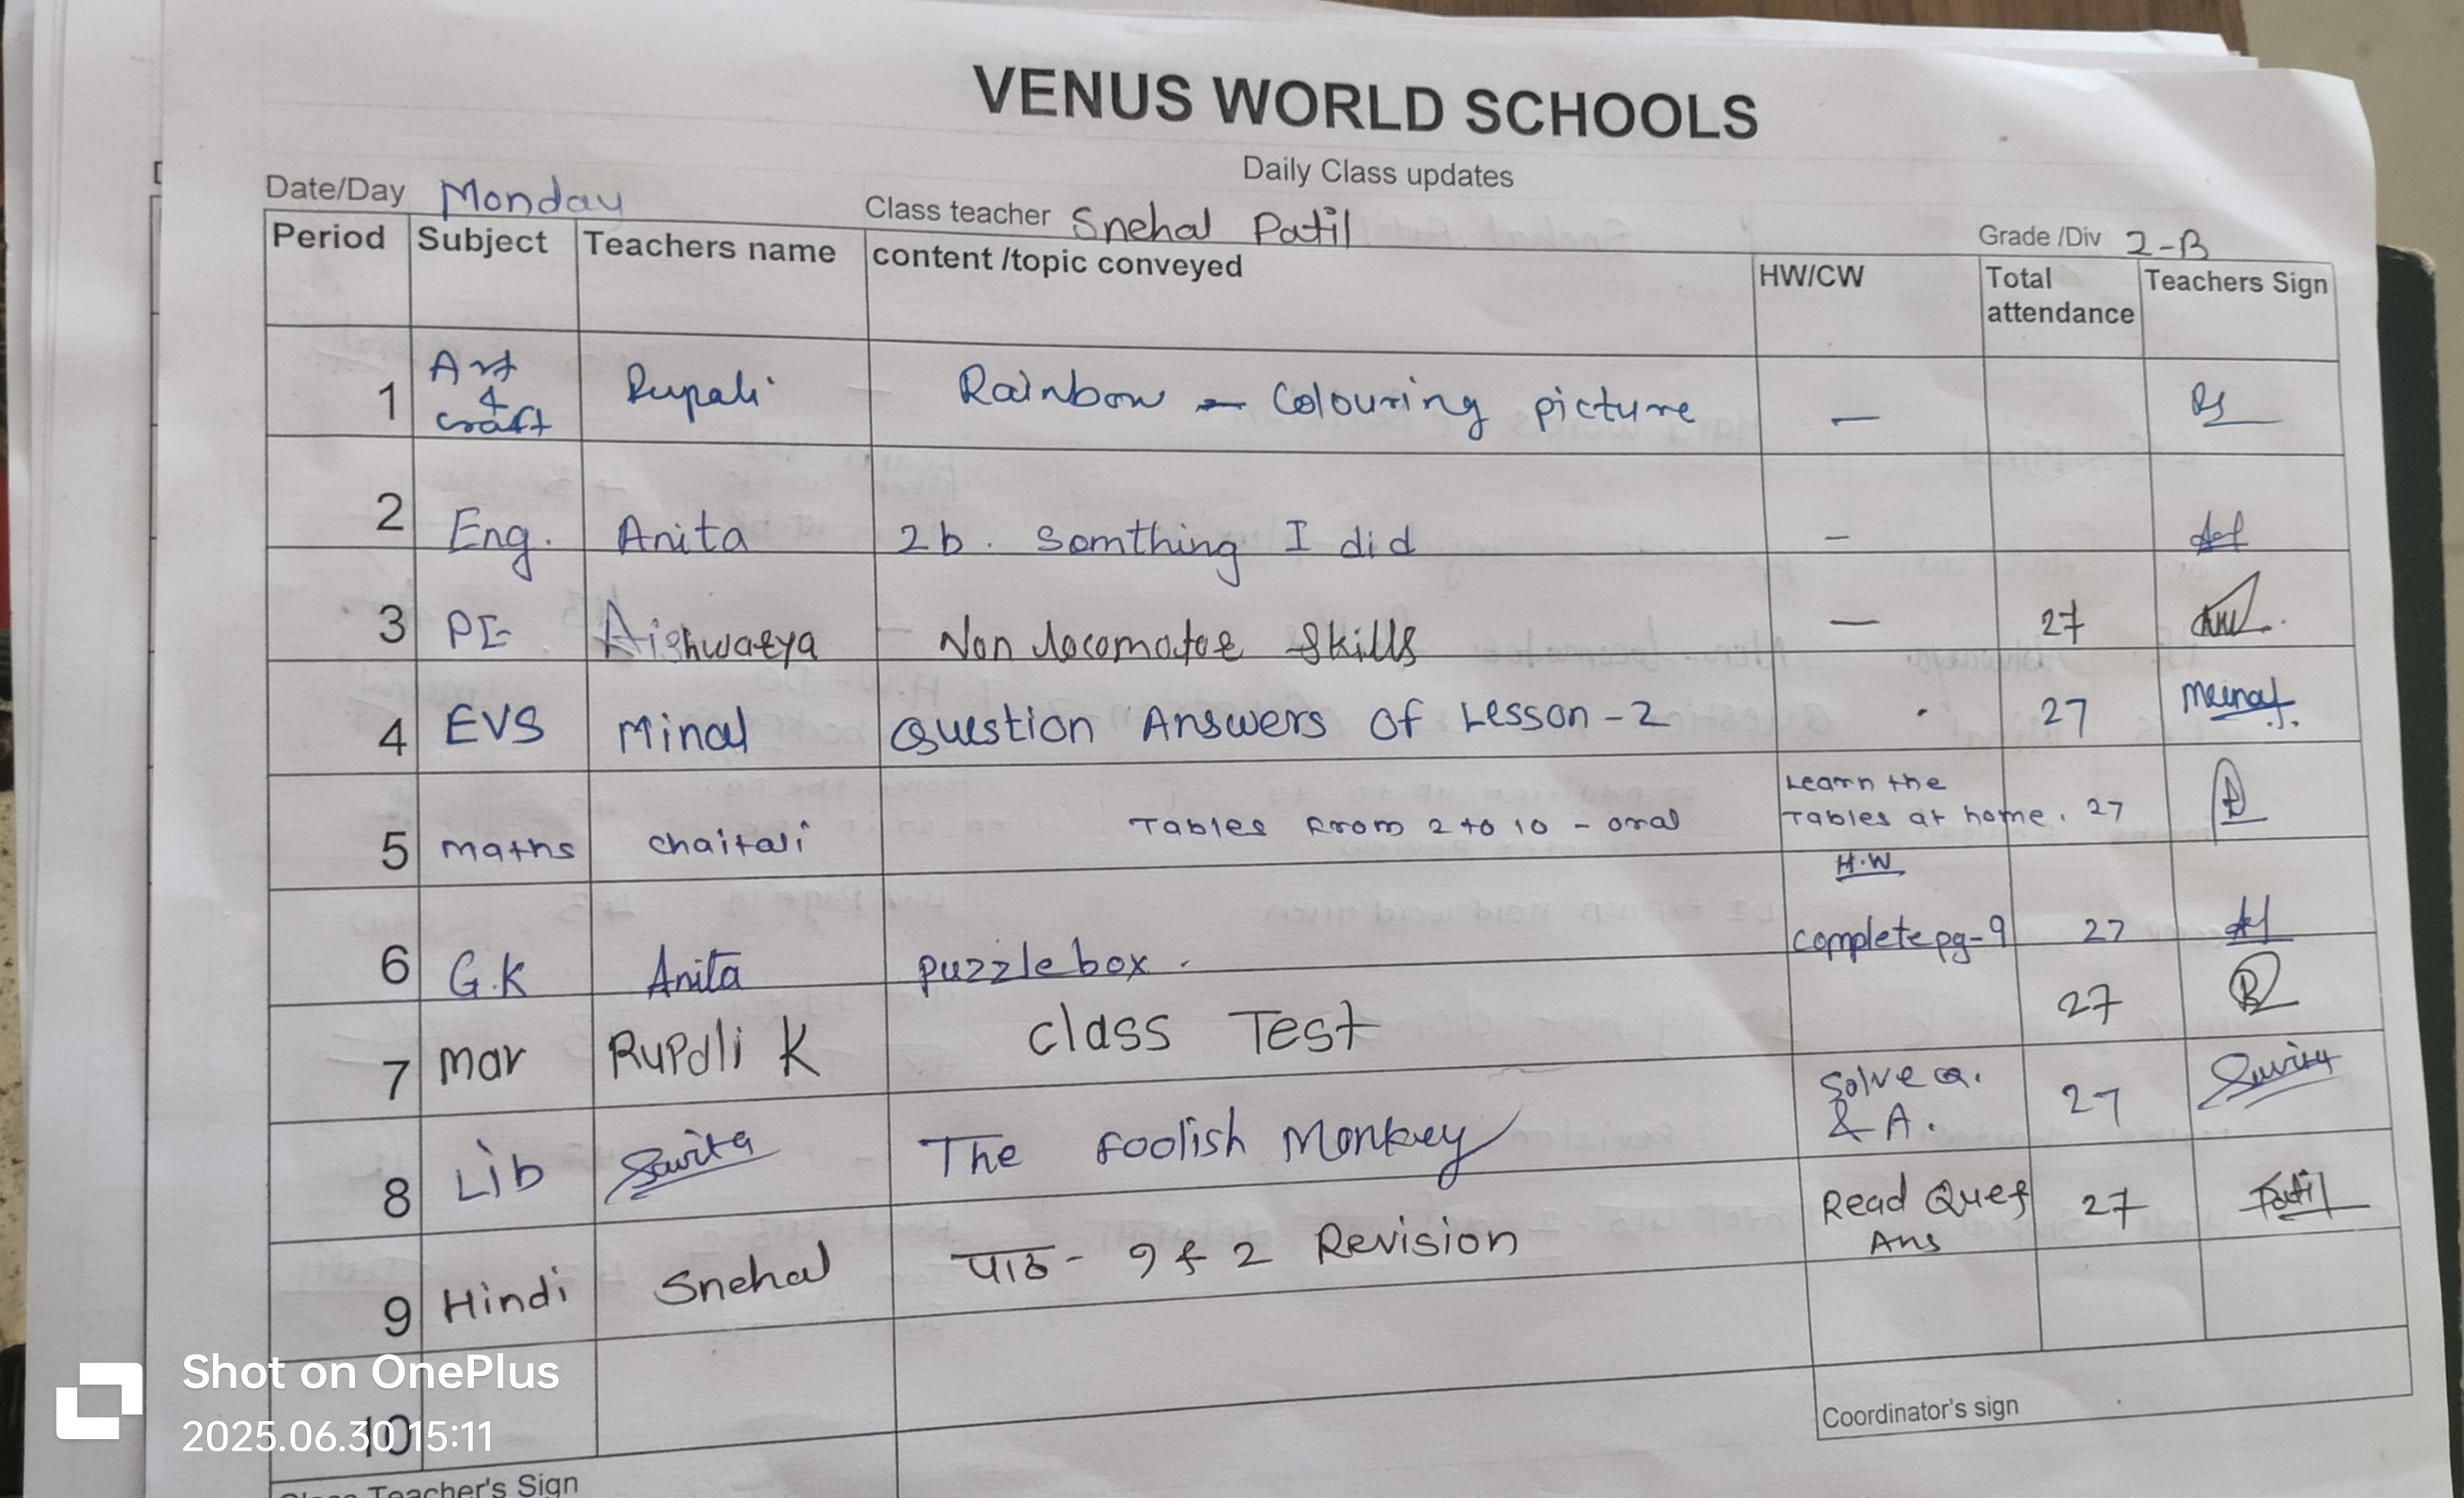 VENUS WORLD SCHOOLS
Daily Class updates
Date/Day Monday Class teacher Snehal Patil Grade /Div 2-B
Period Subject Teachers name content /topic conveyed HW/CW Total attendance Teachers Sign
1 Art & craft Rupali Rainbow - Colouring picture —
2 Eng. Anita 2b. Somthing I did -
3 PE Aishwarya Non locomotor Skills — 27
4 EVS Minal Question Answers of Lesson-2 27
5 maths chaitali Tables from 2 to 10 - oral Learn the Tables at home. 27
6 G.K Anita puzzle box. H.W complete pg-9 27
7 mar Rupali K class Test 27
8 Lib Savita The foolish Monkey Solve Q. & A. 27 Savita
9 Hindi Snehal पाठ- १ & 2 Revision Read Ques Ans 27 Patil
10
Coordinator's sign
Class Teacher's Sign
Shot on OnePlus
2025.06.30 15:11